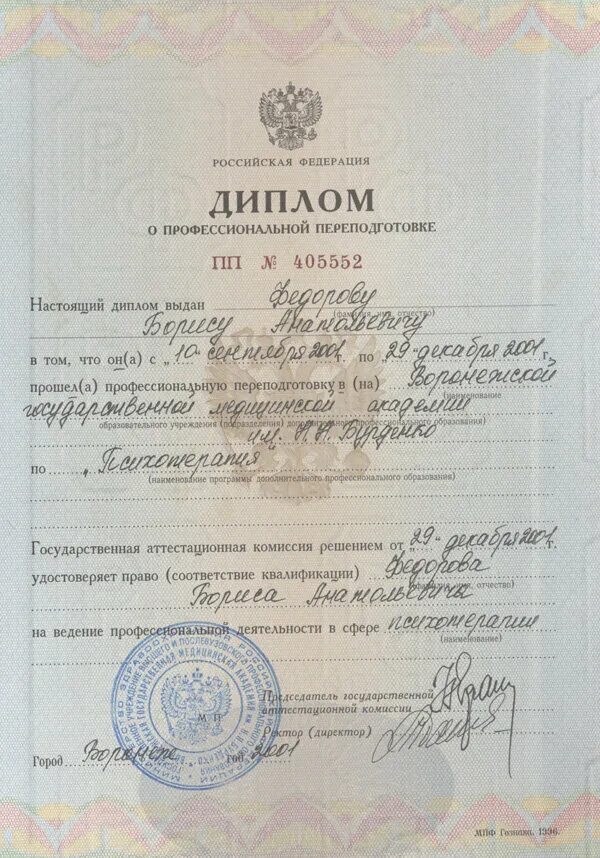 РОССИЙСКАЯ ФЕДЕРАЦИЯ
ДИПЛОМ
О ПРОФЕССИОНАЛЬНОЙ ПЕРЕПОДГОТОВКЕ
ПП № 405552
Настоящий диплом выдан Федорову
(фамилия, имя, отчество)
Борису Анатольевичу
в том, что он(а) с „10„ сентября 2001 г. по „29„ декабря 2001 г.
прошел(а) профессиональную переподготовку в (на) Воронежской
(наименование
государственной медицинской академии
образовательного учреждения (подразделения) дополнительного профессионального образования)
им. Н.Н. Бурденко
по „Психотерапия"
(наименование программы дополнительного профессионального образования)
Государственная аттестационная комиссия решением от „29„ декабря 2001
удостоверяет право (соответствие квалификации) Федорова
(фамилия, имя, отчество)
Бориса Анатольевича
на ведение профессиональной деятельности в сфере психотерапии
(наименование)
Председатель государственной
аттестационной комиссии
Ректор (директор)
М П
Город Воронеж год 2001
МПФ Гознака. 1996.